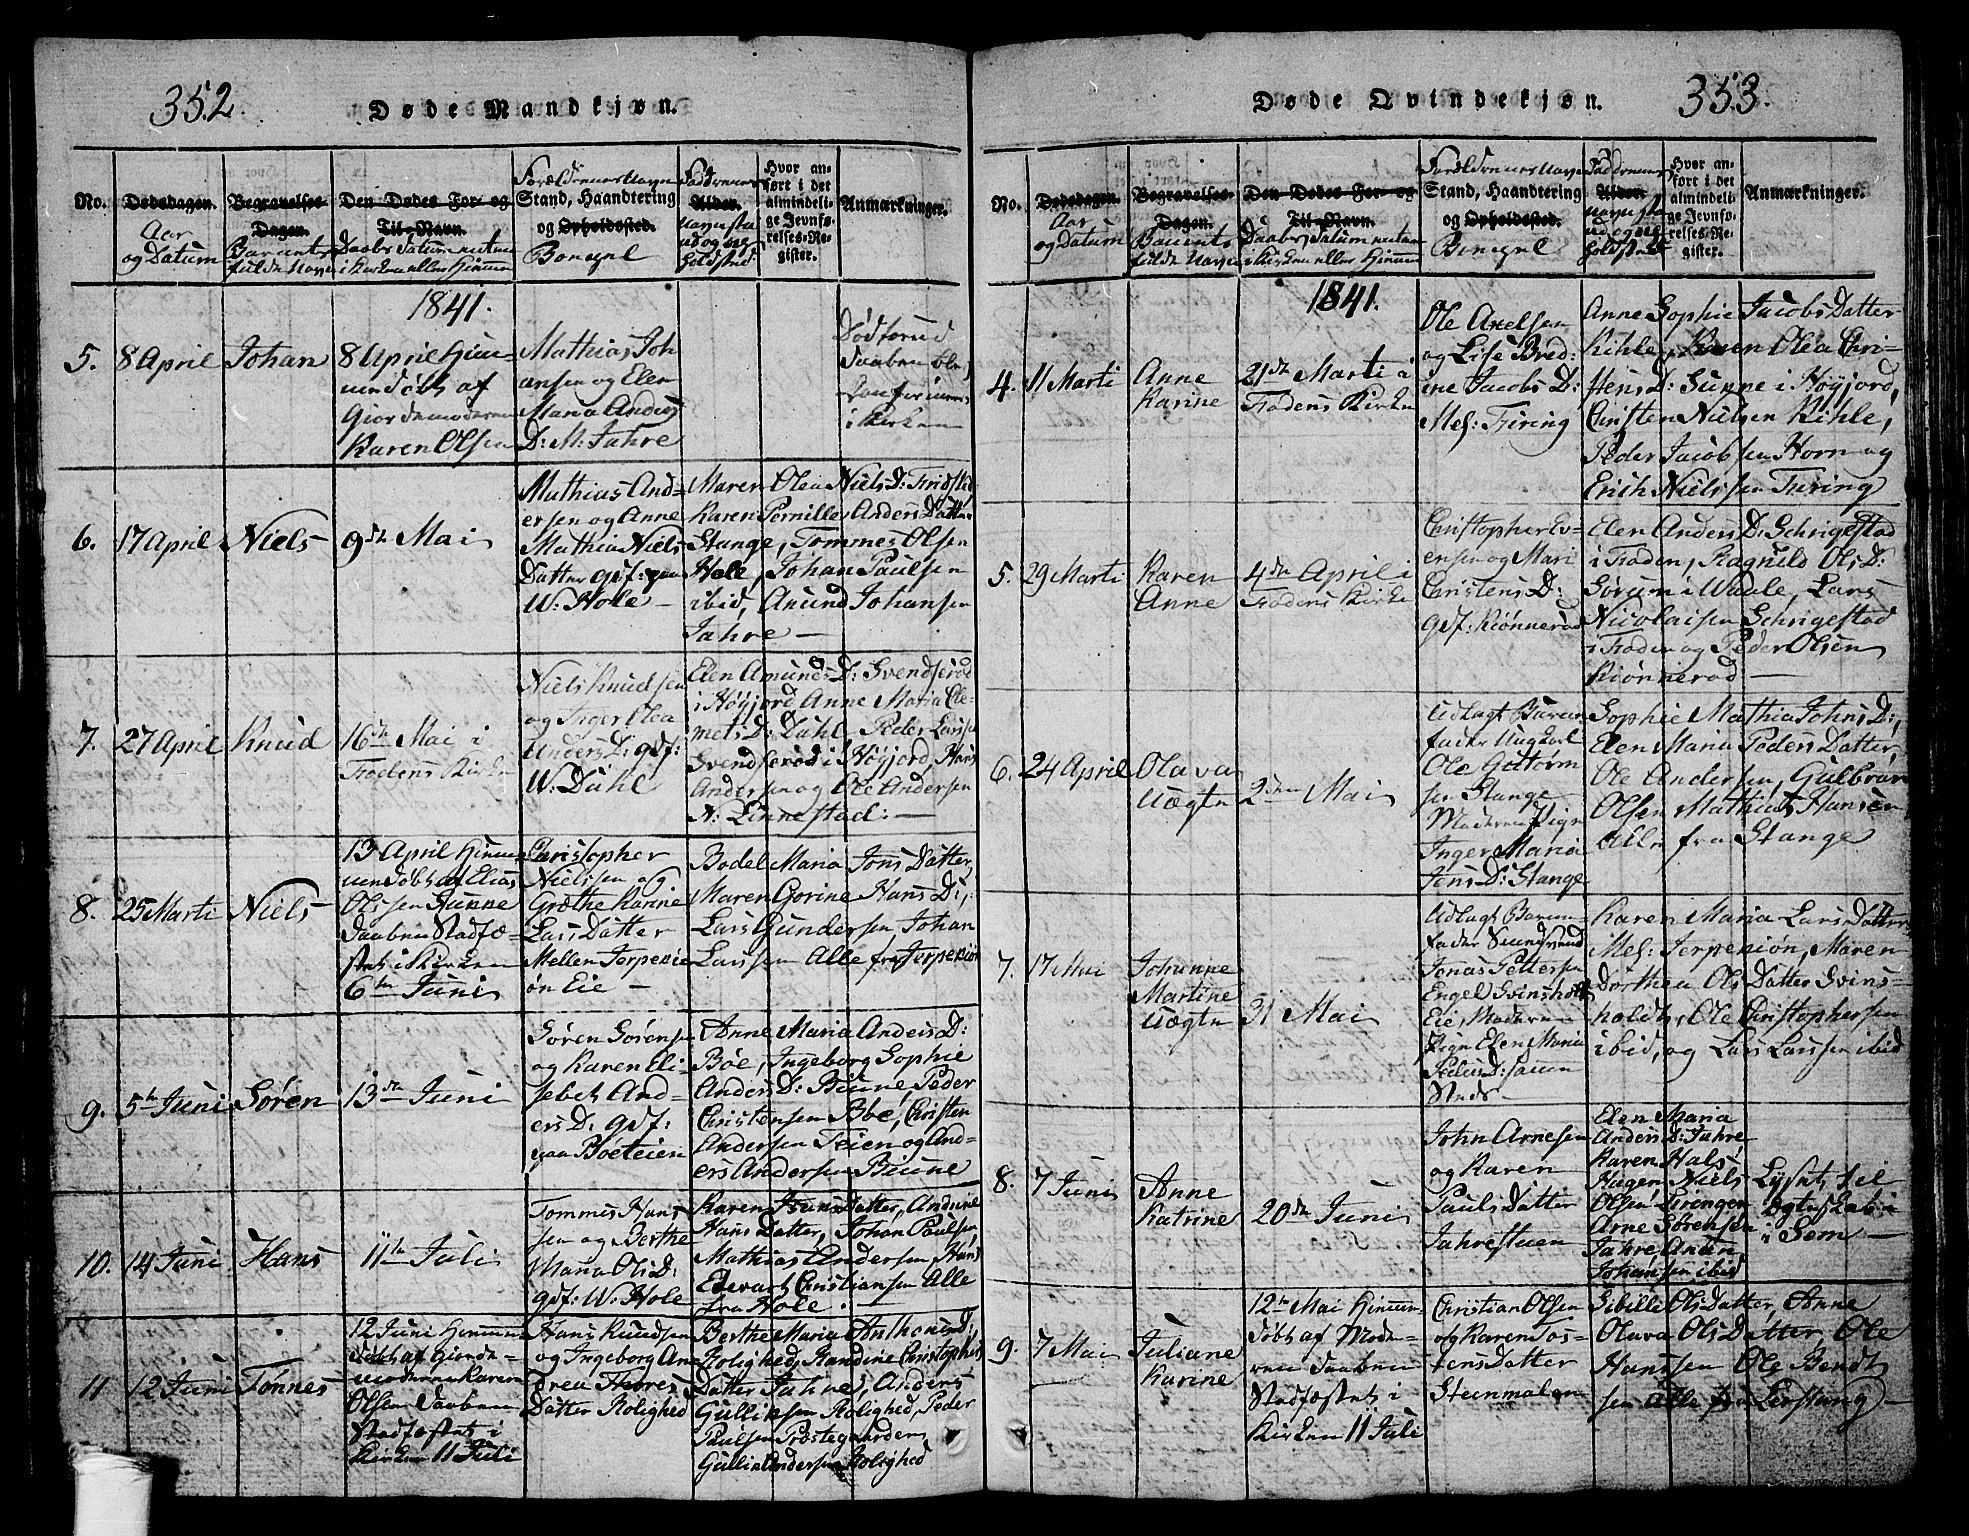 352.
Døde Mandkjøn.
No.
Dødsdagen.
Aar
og Datum
Begravelses-
Dagen.
Barnets
fulde Navn
Den Dødes For- og
Til-Navn.
Daabs Datum enten
i Kirken eller Hiemme
Forældrenes Navn
Stand, Haandtering
og Opholdssted.
Bopæl
Faddernes
Alder.
Navn Sta
nd og Op
holdsted
Hvor an-
ført i det
almindeli-
ge Jevnfø-
relses-Re-
gister.
Anmærkninger.
1841.
5.
8 April
Johan
8 April Hiem-
medøbt af
Giordemoderen
Karen Olsen
Mathias Joh
ansen og Elen
Maria Anders
D: M: Jahre
Dødforend
Daaben blev
Confirmeret
i Kirken
6.
17 April
Niels
9de Mai
Mathias And-
ersen og Anne
Mathia Niels
Datter gdf: paa
W: Hole
Maren Olea Niels D: Fridsted
Karen Pernille Anders Datter
Stange, Tommes Olsen
Hole, Johan Paulsen
ibid, Anund Johansen
Jahre
7.
27 April
Knud
16de Mai i
Fodens Kirke
Niels Knudsen
og Inger Olea
Anders D: gdf:
W: Dahl
Elen Amunds D: Svendserød
i Høyjord Anne Maria Cle-
mets D: Dahl, Peder Larsen
Svendserød i Høyjord, Hans
Andersen og Ole Andersen
N: Linnestad:
8.
25 Marti
Niels
13 April Hiem-
mendøbt af Elias
Olssen Sunne
Daaben Stadfæ-
stet i Kirken
6te Juni
Christopher
Nielssen og
Grethe Karine
Lars Datter
Mellem Jerpekiø
øn Eie
Bodel Maria Jons Datter,
Maren Gorine Hans D:,
Lars Gundersen, Johan
Larssen Alle fra Jerpekiøn
9.
5te Juni
Søren
13de Juni
Søren Sørensen
og Karen Eli-
sebet And-
ers D: gdf:
paa Bøeteien
Anne Maria Anders D:
Bøe, Ingeborg Sophie
Anders D: Biune, Peder
Christensen Bøe, Christen
Andersen Teien og And-
ers Andersen Biune
10.
14 Juni
Hans
11te Juli
Tommes Hans
sen og Berthe
Maria Ols D:
gdf: W: Hole
Karen Hans Datter, Andrine
Hans Datter, Johan Paulsen
Mathias Andersen, Hans
Edevart Christiansen Alle
fra Hole.
11
12 Juni
Tønnes
12 Juni Hiemme
døbt af Giorde-
moderen Karen
Olsen Daaben
Stadfæstet i
Kirken 11 Juli
Hans Knudsen
og Ingeborg An
drea Thores
Datter Rolighed
Berthe Maria Anthonis D:
Rolighed, Randine Christophers
Datter Jahre, Anders
Gulliksen Rolighed, Peder
Paulsen Præstegaarden
Gullik Andersen Rolighed
Døde Qvindekjøn.
353.
No.
Dødsdagen.
Aar
og Datum
Begravelses-
Dagen.
Barnets
fulde Navn
Den Dødes For- og
Til-Navn.
Daabs Datum enten
i Kirken eller Hiemme
Forældrenes Navn
Stand, Haandtering
og Opholdssted.
Bopæl
Faddernes
Alder.
Navn Sta
nd og Op
holdsted
Hvor an-
ført i det
almindeli-
ge Jevnfø-
relses-Re-
gister.
Anmærkninger.
1841.
4.
11 Marti
Anne
Karine
21de Marti i
Fodens Kirke
Ole Axelsen
og Lise Bred:
ine Jacobs D:
Mel: Firing
Anne Sophie Jacobs Datter
Kihle, Karen Olea Chri-
stens D: Sunne i Høyjord,
Christen Nielsen Kihle,
Peder Jacobsen Horn og
Erich Nielssen Furing
5.
29 Marti
Karen
Anne
4de April i
Fodens Kirke
Christopher Ev-
ensen og Mari
Christens D:
gdf: Kiønnerød
Elen Anders D: Schrigestad
i Foden, Ragnild Ols D:
Sørum i Waale, Lars
Nicolaisen Schrigestad
i Foden og Peder Olsen
Kiønnerød
6.
24 April
Olava
Uægte
2den Mai
Udlagt Barne
fader Ungkarl
Ole Guttorm
sen Stange
Moderen Pigen
Inger Maria
Jens D: Stange
Sophie Mathia Johns D:,
Elen Maria Peders Datter
Ole Andersen, Gulbrand
Olsen Mathias Hansen
Alle fra Stange
7.
17 Mai
Johanne
Martine
Uægte
31 Mai
Udlagt Barne
fader
Jonas Pettersen
Engel Svinsholt
Eie, Moderen
Pigen Elen Maria
Karen Maria Lars Datter
Mel: Jerpekiøn, Maren
Dorthea Ols Datter Svins-
holdt, Ole Christophersen
ibid, og Lars Larssen ibid
8.
7 Juni
Anne
Katrine
20de Juni
John Arnesen
og Karen
Pauls Datter
Jahrestuen
Elen Maria
Anders D: Jahre
Karen Hals
Hagen Niels
Olsen Grengen
Arne Sørensen
Jahre, Anun
Johansen ibid
Lyst til
Egteskab
i Sem
9.
7 Mai
Juliane
Karine
12te Mai Hiemme-
døbt af Mode-
ren Daaben
Stadfæstet i
Kirken 11 Juli
Christian Olsen
og Karen Tos-
tens Datter
Steenmalen
Sibille Ols Datter, Anne
Olava Ols Datter, Ole
Hanssen Ole Bendt
sen Alle fra Lerstang